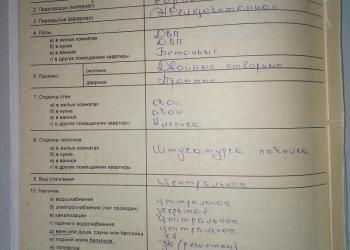 2. Перегородки (материал)
3. Перекрытия (материал) Железобетонное
4. Полы
а) в жилых комнатах ДВП
б) в кухне ДВП
в) в ванной Бетонные
г) в других помещениях квартиры
6. Проемы оконные Двойные створные
дверные Простые
7. Отделка стен
а) в жилых комнатах обои
б) в кухне обои
в) в ванной клеенка
г) в других помещениях квартиры
8. Отделка потолков
а) в жилых комнатах Штукатурка побелка
б) в кухне
в) в ванной
г) в других помещениях квартиры
9. Вид отопления Центральное
10. Наличие:
а) водоснабжения центральное
б) электроснабжения (тип проводки) скрытой
в) канализации центральное
г) горячего водоснабжения центральное
д) ванн или душа, сауны или бассейна
е) лоджий или балконов
ж) телефона